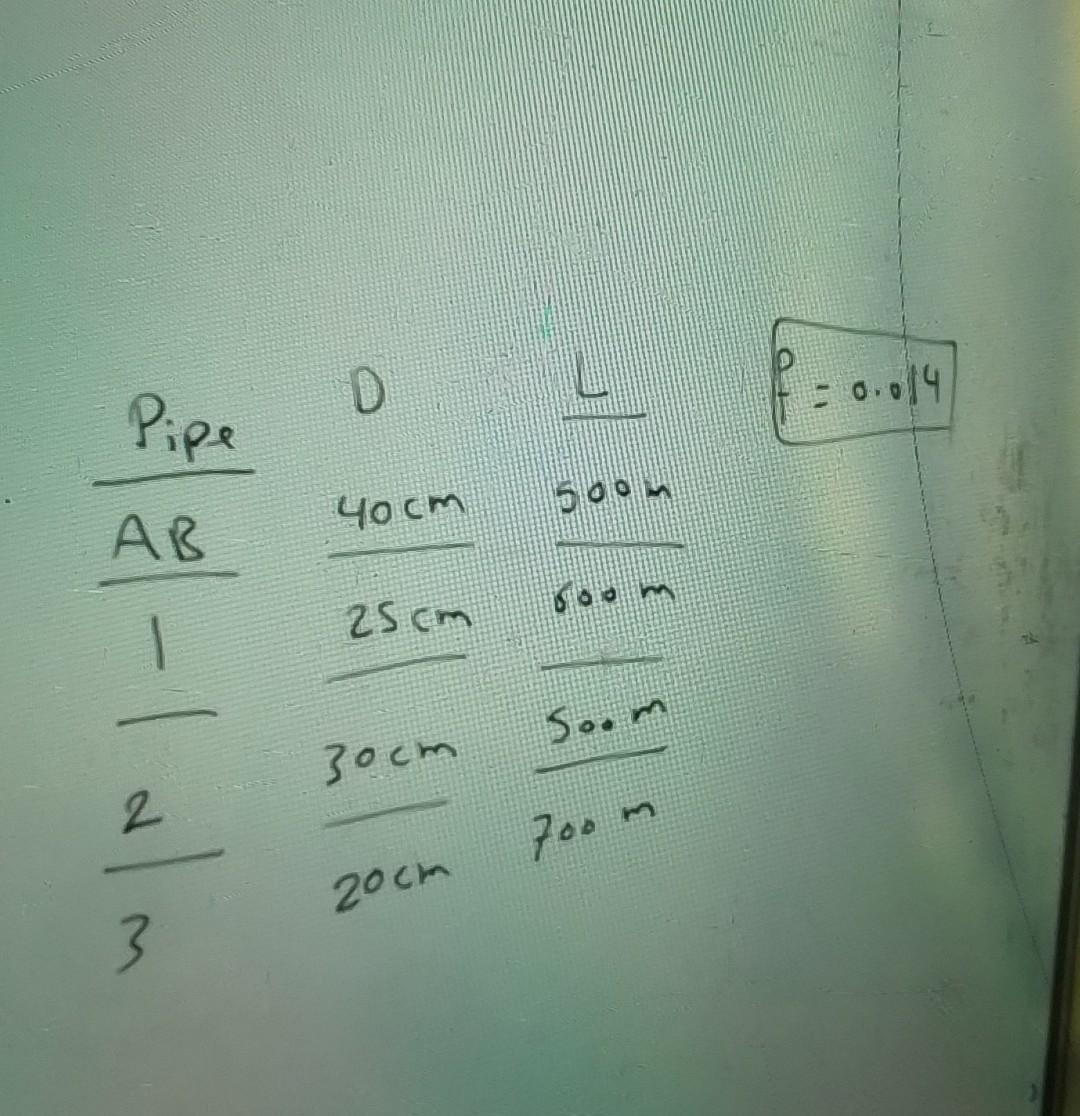 Pipe D L f = 0.014
AB 40cm 500m
1 25cm 600 m
2 30cm 500 m
3 20cm 700 m